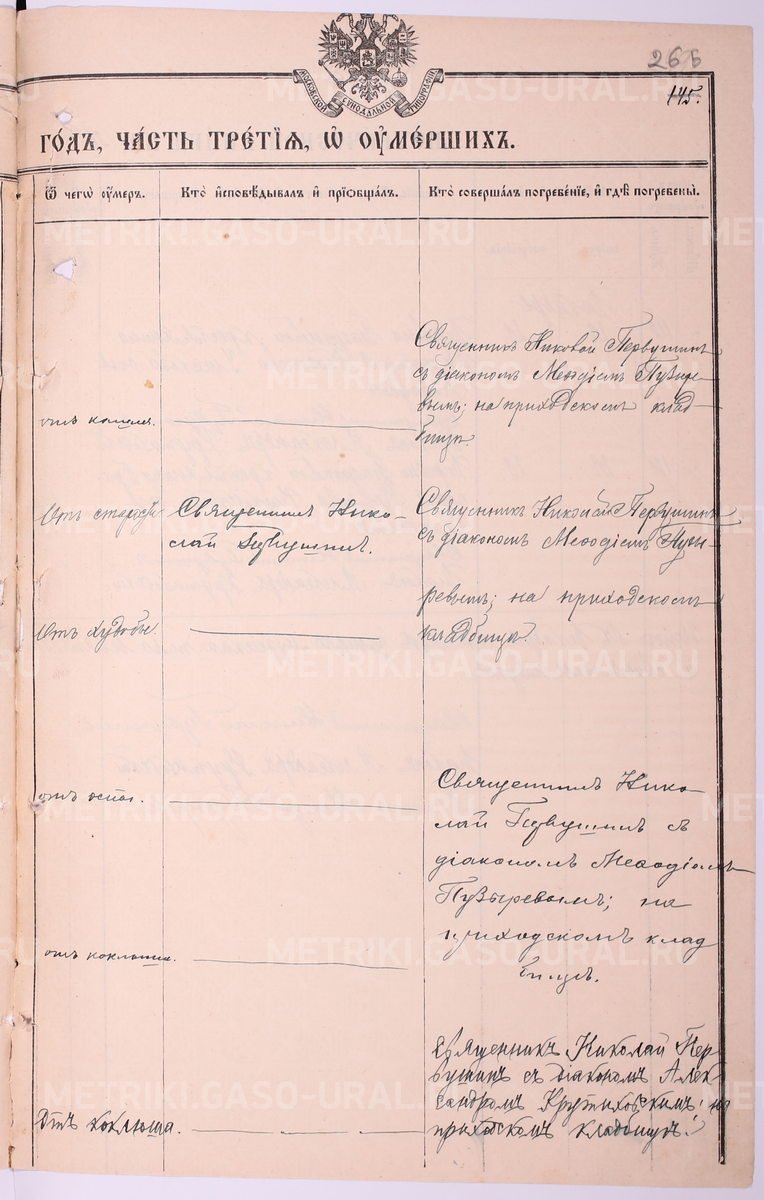 266
145.
МОСКОВСКОЙ СѴНОДАЛЬНОЙ ТИПОГРАФІИ
го́дъ, ча́сть тре́тїѧ, ѡ҆ ᲂу҆ме́ршихъ.
Ѿ чегѡ̀ ᲂу҆́меръ.
Кто̀ и҆сповѣ́дывалъ и҆ прїѡбща́лъ.
Кто̀ соверша́лъ погребе́нїе, и҆ гдѣ̀ погребены̀.
Священникъ Николай Первушинъ
съ діакономъ Меѳодіемъ Пузыре-
вымъ; на приходскомъ клад-
бищѣ.
отъ кашля.
Отъ старости
Священникъ Нико-
лай Первушинъ.
Священникъ Николай Первушинъ
съ діакономъ Меѳодіемъ Пузы-
ревымъ; на приходскомъ
кладбищѣ.
Отъ худобы.
отъ оспы.
Священникъ Нико-
лай Первушинъ съ
діакономъ Меѳодіемъ
Пузыревымъ; на
приходскомъ клад
бищѣ.
отъ коклюша.
Священникъ Николай Пер
вушинъ съ діакономъ Алек
сандромъ Крутиховскимъ; на
приходскомъ кладбищѣ.
Отъ коклюша.
METRIKI.GASO-URAL.RU